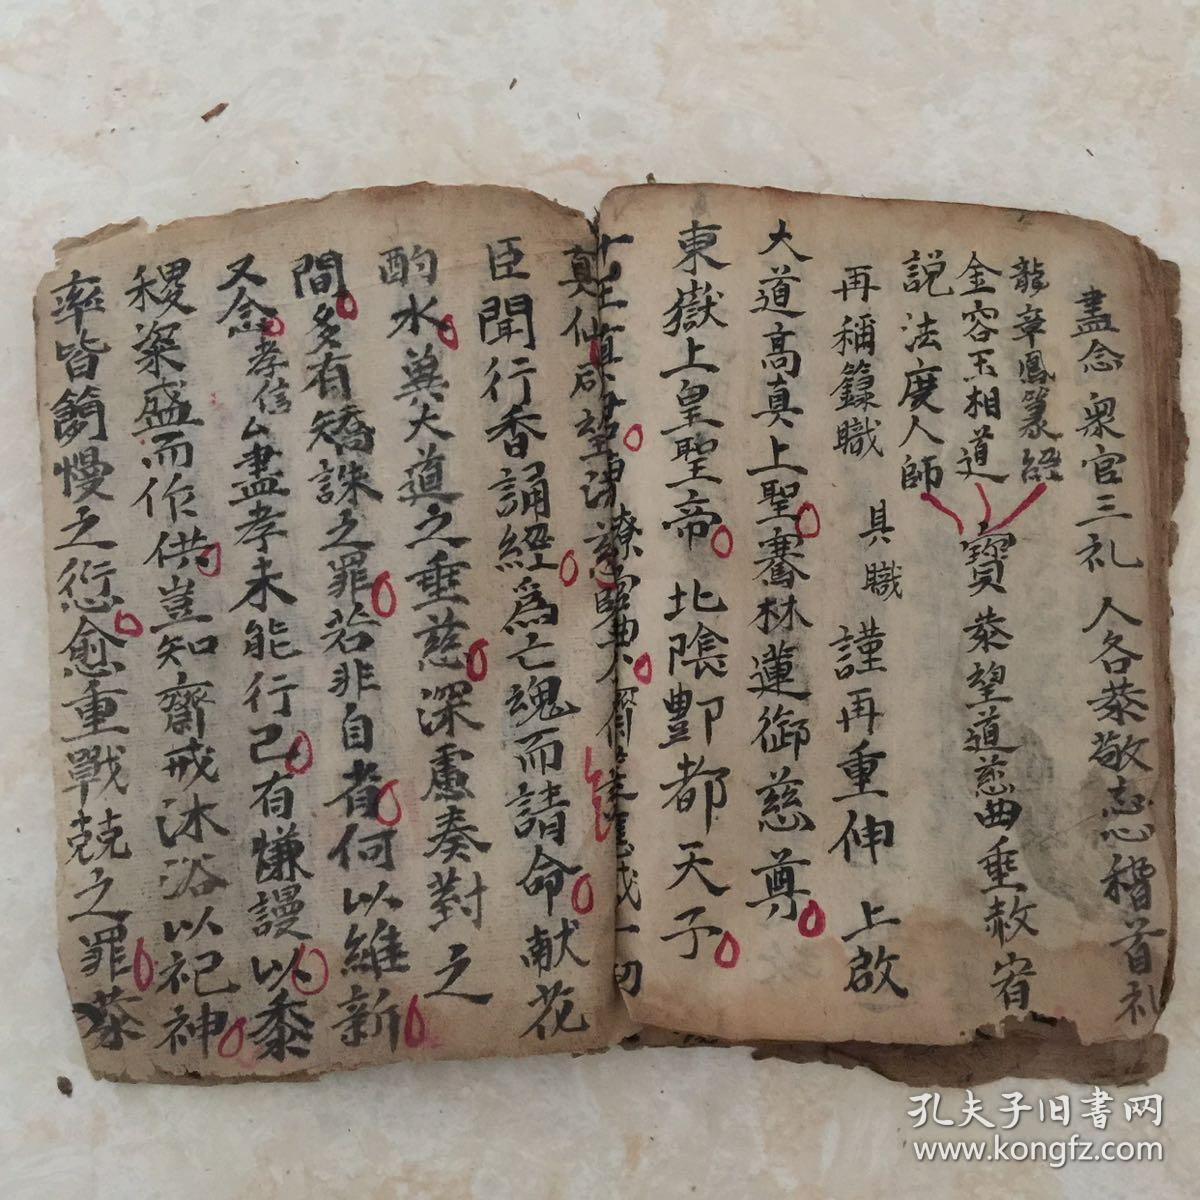 盡念衆官三礼 人各恭敬志心稽首礼
龍章鳳篆經
金容玉相道
説法度人師
寶 恭望道慈曲垂赦宥
再稱籙職 具職 謹再重伸上啟
大道高真上聖騫林蓮御慈尊
東嶽上皇聖帝 北陰酆都天子
真仙
臣聞行香誦經為亡魂而請命献花
酌水奠大道之垂慈深慮奏對之
間多有矯誅之罪若非自者何以維新
又念孝信厶盡孝未能行己有慊謾以黍
稷粢盛而作供豈知齋戒沐浴以祀神
率皆簡慢之愆愈重戰兢之罪恭
孔夫子旧書网
www.kongfz.com